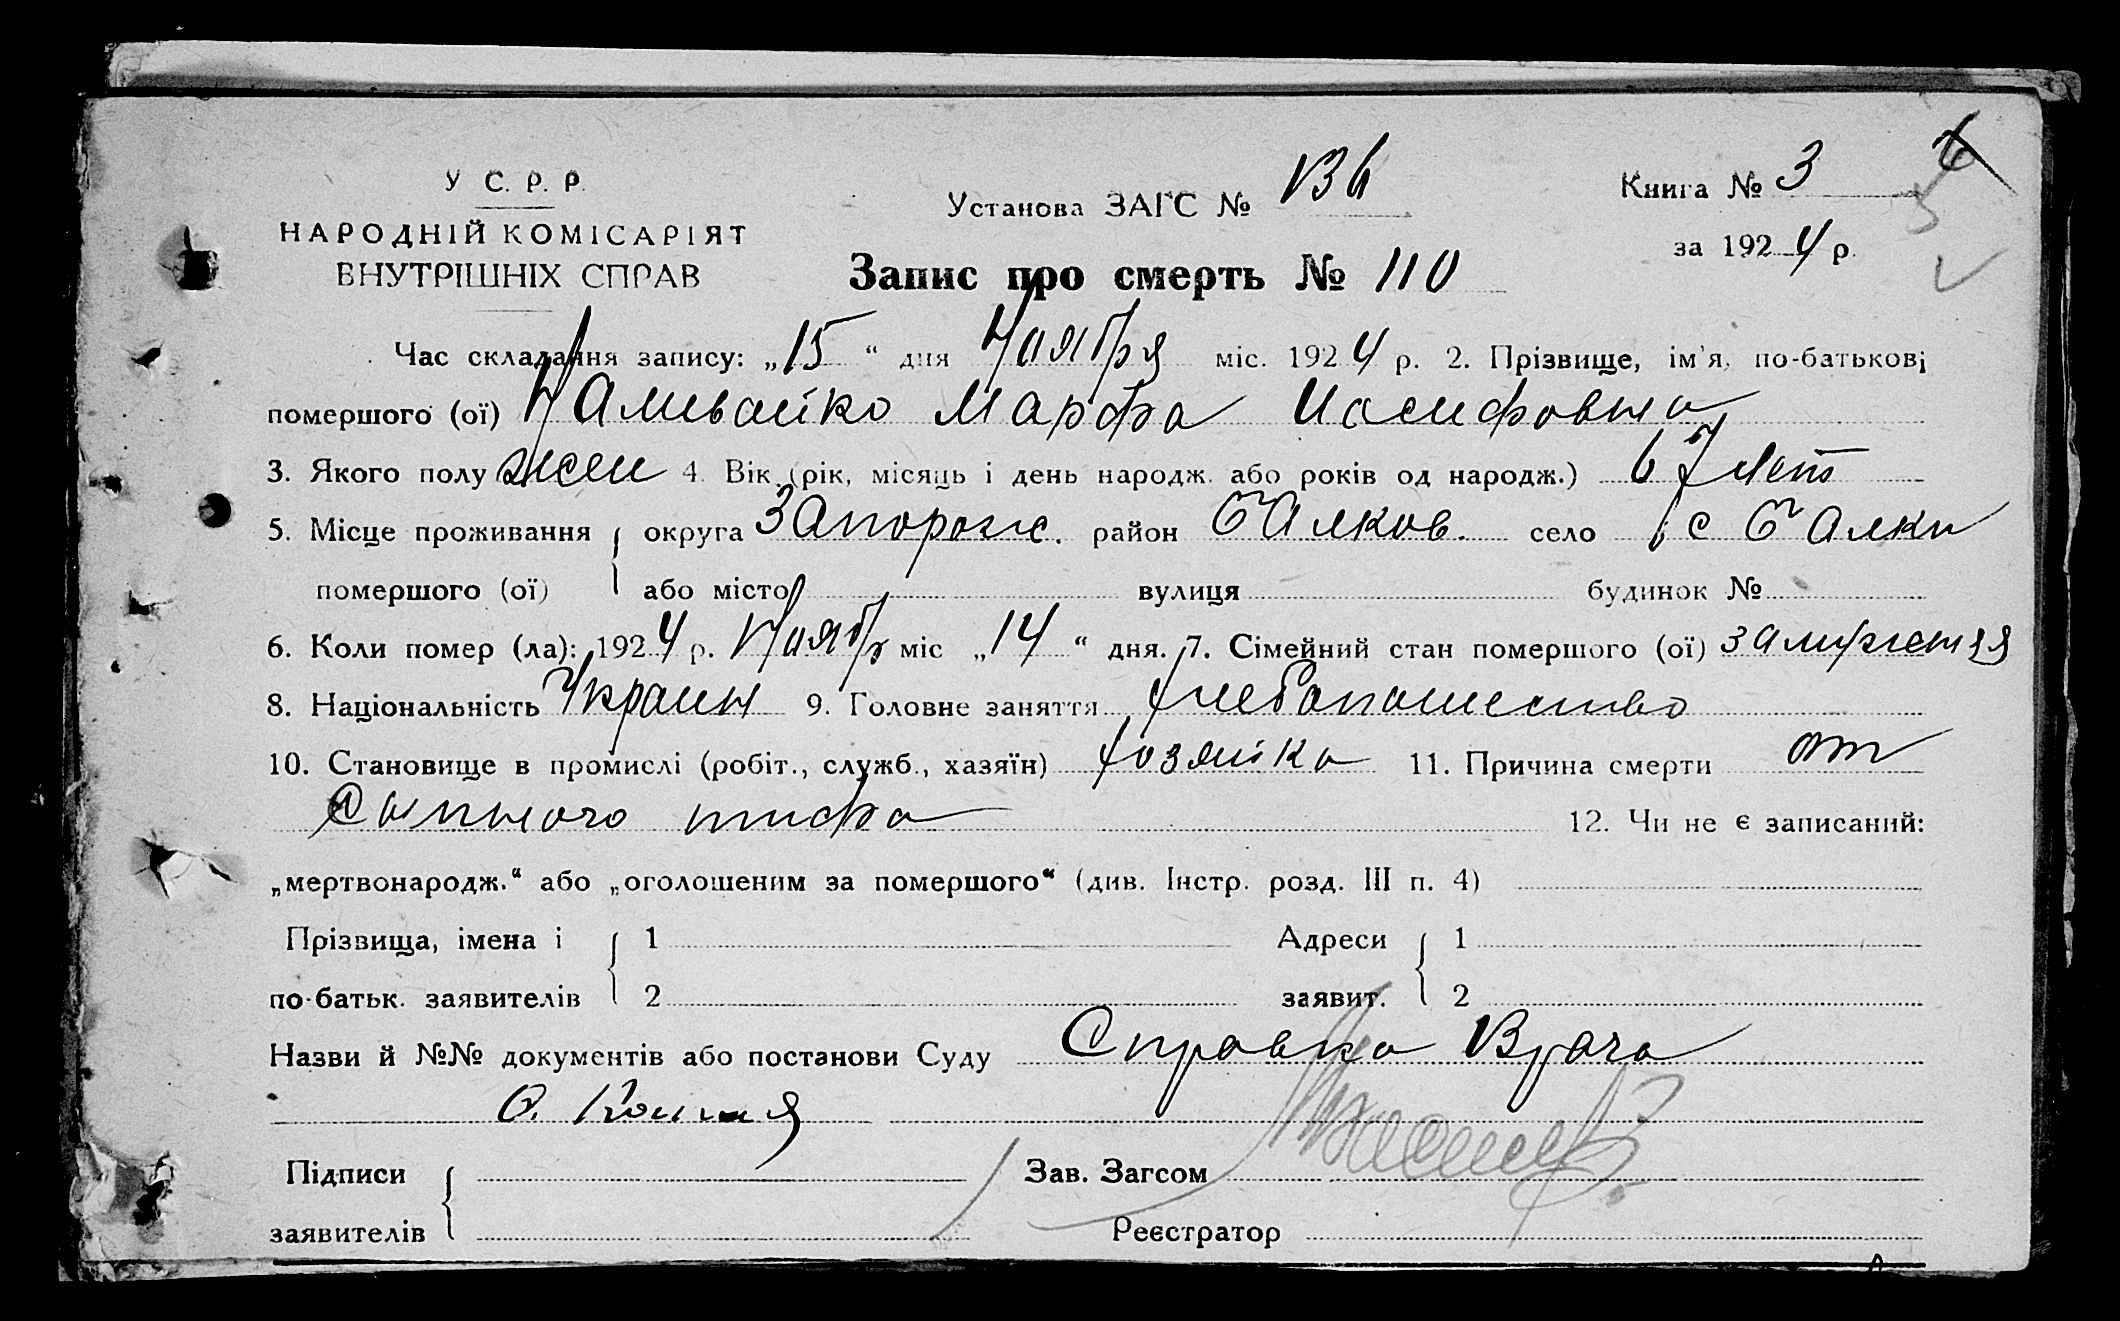 У С. Р. Р.
НАРОДНІЙ КОМІСАРІЯТ
ВНУТРІШНІХ СПРАВ
Установа ЗАГС №
Книга № 3
за 1924 р.
Запис про смерть № 110
Час складання запису: „15“ дня Ноября міс. 1924 р. 2. Прізвище, ім'я, по-батькові
помершого (ої) Наливайко Марфа Иосифовна
3. Якого полу жен 4. Вік (рік, місяць і день народж. або років од народж.) 67 лет
5. Місце проживання помершого (ої) { округа Запорож. район Балков. село с Балки
або місто вулиця будинок №
6. Коли помер (ла): 1924 р. Ноябр міс „14“ дня. 7. Сімейний стан помершого (ої) замужняя
8. Національність Украин 9. Головне заняття хлебопашество
10. Становище в промислі (робіт., служб., хазяїн) хозяйка 11. Причина смерти от
Сыпного тифа 12. Чи не є записаний:
„мертвонародж.“ або „оголошеним за помершого“ (див. Інстр. розд. III п. 4)
Прізвища, імена і по-батьк. заявителів { 1 Адреси заявит. { 1
2 2
Назви й №№ документів або постанови Суду Справка Врача
Підписи заявителів { Зав. Загсом
Реєстратор